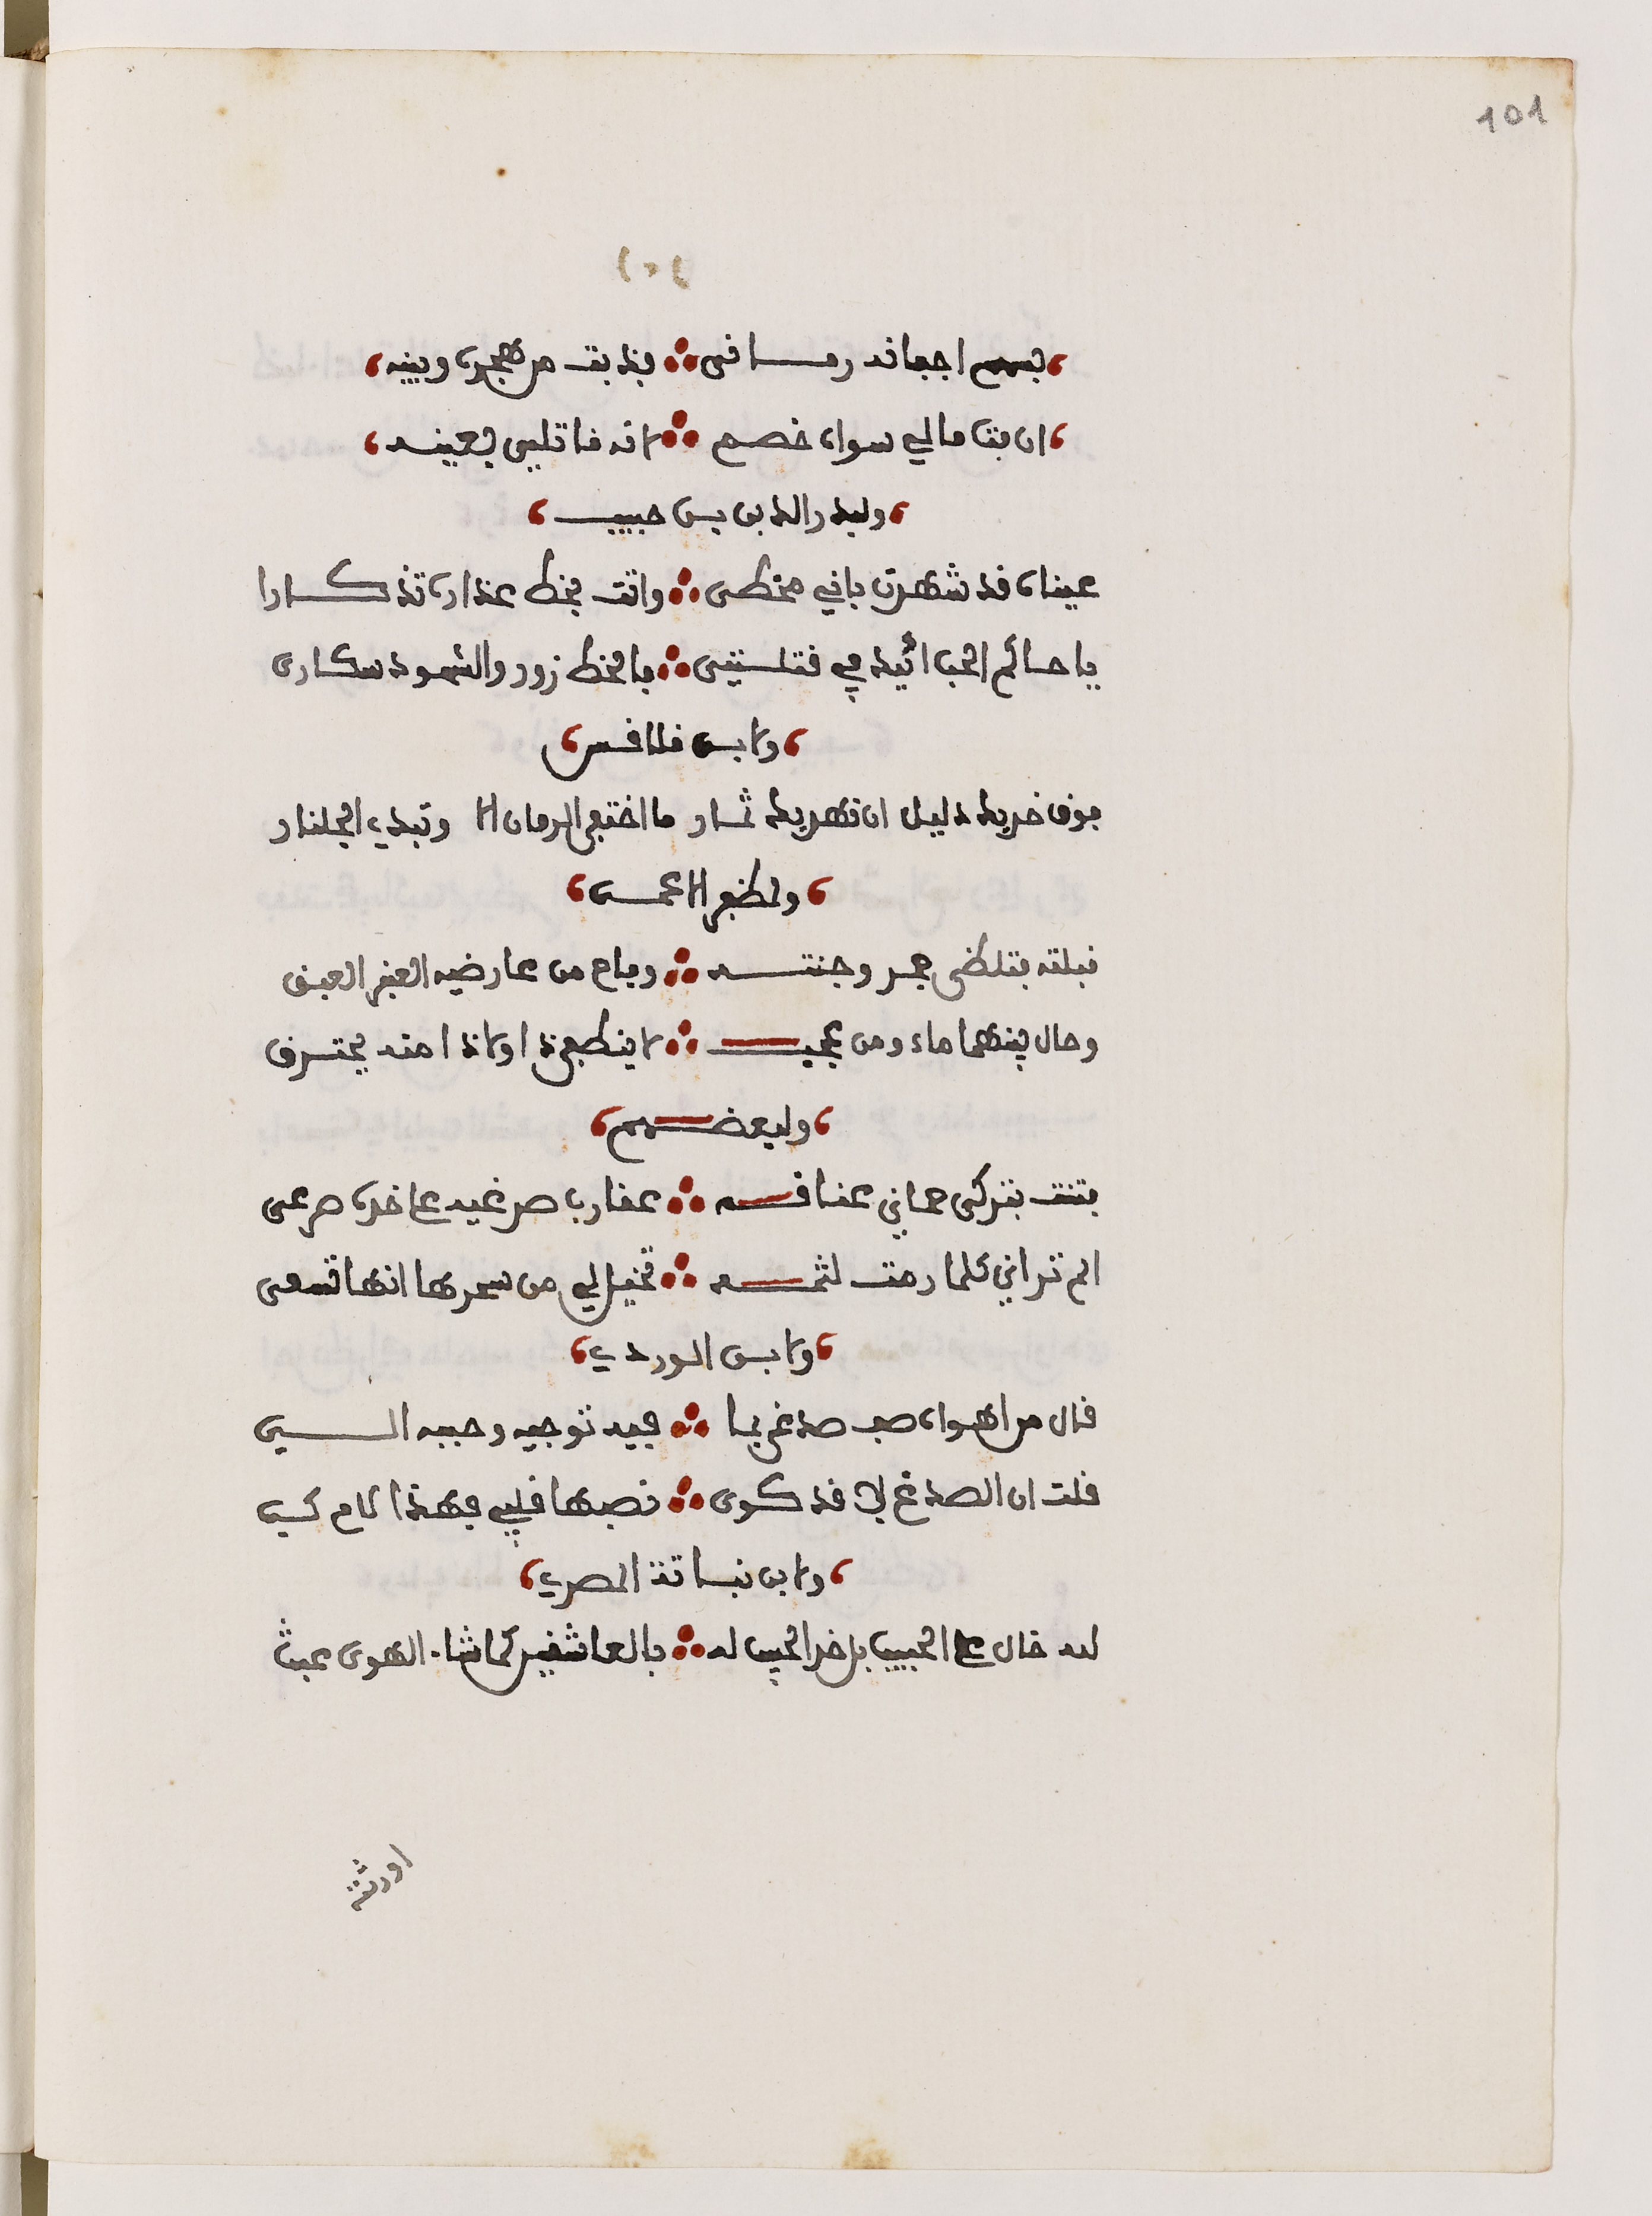 101
١٠١
بسهم اجفانه رماني ∴ فذبت من هجره وبينه
ان مت ما لي سواه خصم ∴ لانه قاتلي بعينه
ولبدر الدين بن حبيب
عيناه قد شهدت باني مخطي ∴ واتت بخط عذاره تذكارا
يا حاكم الحب اتيد في قتلتي ∴ فالخط زور والشهود سكارى
ولابن قلاقس
فوق خديك دليل ان نهديك ثمار ما اختفى الرمان الا وتبدي الجلنار
ولمظفر الاعمى
قبلته فتلظى جمر وجنته ∴ وفاح من عارضيه العنبر العبق
وحال بينهما ماء ومن عجب ∴ لا ينطفي ذا ولا ذا منه يحترق
ولبعضهم
فتنت بتركي حماني عناقه ∴ عقارب صدغيه على خده صرعى
الم تراني كلما رمت لثمه ∴ تخيل لي من سحرها انها تسعى
ولابن الوردي
قال من اهواه صف صدغي بما ∴ فيه توجيه وحببه الي
قلت ان الصدغ لام قد كوى ∴ نصبها قلبي فهذا لام كي
ولابن نباتة المصري
لله خال على الحبيب بل خد الحبيب له ∴ بالعاشقين كما شاء الهوى عبث
اورثته